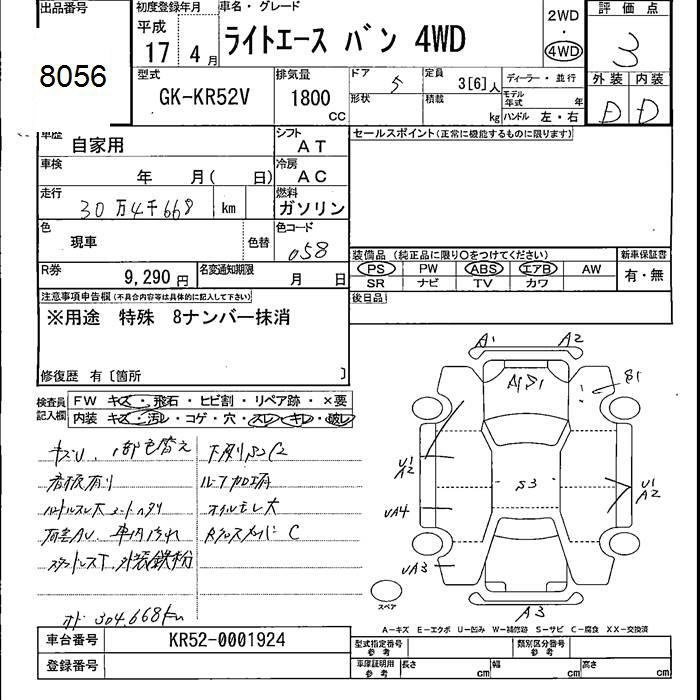 出品番号
8056
初度登録年月
平成
17 年 4 月
車名・グレード
ライトエース バン 4WD
2WD
・
4WD
評価点
3
外装 内装
D D
型式
GK-KR52V
排気量
1800 CC
ドア 5
定員 3[6]人
形状
積載 kg
ディーラー・並行
モデル年式 年
ハンドル 左・右
車歴
自家用
シフト
AT
車検
年 月( 日)
冷房
AC
走行
30万4千668 km
燃料
ガソリン
色
現車
色替
色コード
058
R券
9,290円
名変通知期限
月 日
セールスポイント(正常に機能するものに限ります)
装備品 (純正品に限り○をつけてください)
PS PW ABS エアB AW
SR ナビ TV カワ
新車保証書
有・無
後日品
注意事項申告欄(不具合内容等は具体的に記入して下さい)
※用途 特殊 8ナンバー抹消
修復歴 有[箇所 ]
検査員記入欄
FW キズ・飛石・ヒビ割・リペア跡・×要
内装 キズ・汚レ・コゲ・穴・スレ・キレ・破レ
キズU 1部色替え
看板有り
ルーフ加工有
オイルモレ大
車内汚れ
スタットレスT 外装鉄粉
オド 304,668km
A1 A2
A1S1
S1
U1
A2
S3
U1
A2
UA4
UA3
A3
スペア
A-キズ E-エクボ U-凹み W-補修跡 S-サビ C-腐食 XX-交換済
車台番号 KR52-0001924
登録番号
型式指定番号 参考
類別区分番号 参考
車庫証明用 参考
長さ cm 幅 cm 高さ cm